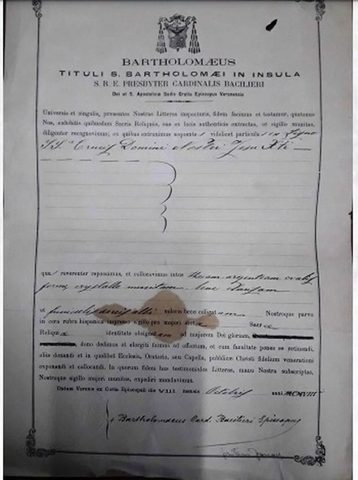 BARTHOLOMÆUS
TITULI S. BARTHOLOMÆI IN INSULA
S. R. E. PRESBYTER CARDINALIS BACILIERI
Dei et S. Apostolicæ Sedis Gratia Episcopus Veronensis
Universis et singulis, præsentes Nostras Litteras inspecturis, fidem facimus et testamur, quatenus
Nos, exhibitis quibusdam Sacris Reliquiis, eas ex locis authenticis extractas, et sigillo munitas,
diligenter recognovimus; ex quibus extraximus sequentes videlicet particulas ex Ligno
SS. Crucis Domini Nostri Jesu Xti
quas reverenter reposuimus, et collocavimus intra thecam argenteam ovalis
formæ, crystallo munitam, bene clausam
et funiculo serico rubri coloris bene colligatam Nostroque parvo
in cera rubra hispanica impresso sigillo pro Sacræ
Reliquiæ identitate obsignatam ad majorem Dei gloriam,
dono dedimus et elargiti fuimus ad effectum, et cum facultate penes se retinendi,
aliis donandi et in qualibet Ecclesia, Oratorio, seu Capella, publicæ Christi fidelium venerationi
exponendi et collocandi. In quorum fidem has testimoniales Litteras, manu Nostra subscriptas,
Nostroque sigillo munitas, expediri mandavimus.
Datum Veronæ ex Curia Episcopali die VIII mensis Octobris anni
+ Bartholomæus Card. Bacilieri Episcopus